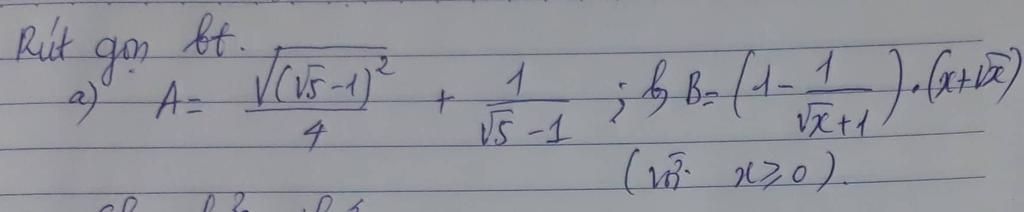 Rút gọn bt.
a) A = √(√5-1)² / 4 + 1 / √5-1 ; b) B = (1 - 1 / √x+1) . (x+√x)
(với x ≥ 0).